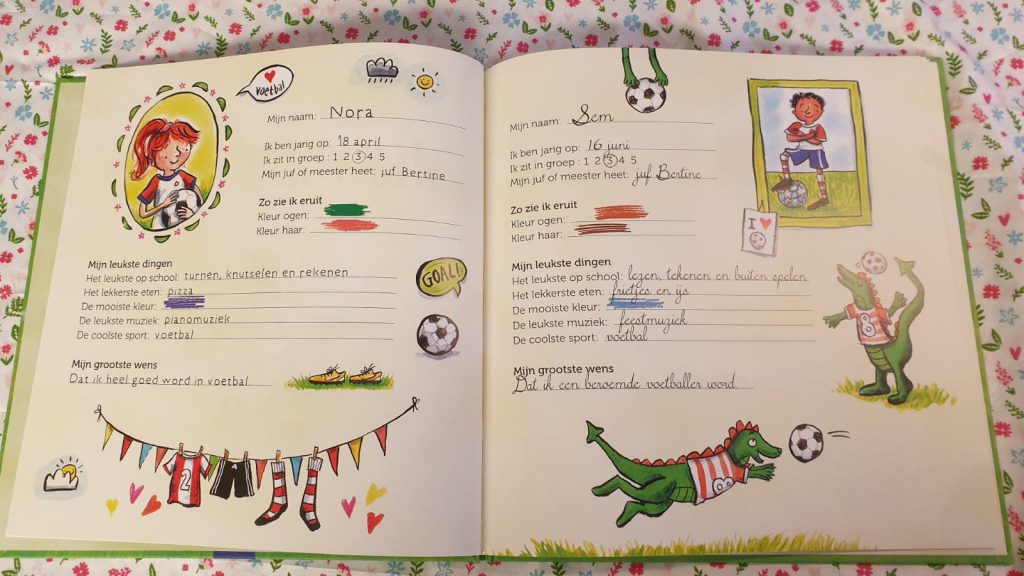 voetbal
Mijn naam: Nora
Ik ben jarig op: 18 april
Ik zit in groep: 1 2 3 4 5
Mijn juf of meester heet: juf Bertine
Zo zie ik eruit
Kleur ogen:
Kleur haar:
Mijn leukste dingen
Het leukste op school: turnen, knutselen en rekenen
Het lekkerste eten: pizza
De mooiste kleur:
De leukste muziek: pianomuziek
De coolste sport: voetbal
GOAL!
Mijn grootste wens
Dat ik heel goed word in voetbal
2
Mijn naam: Sem
Ik ben jarig op: 16 juni
Ik zit in groep: 1 2 3 4 5
Mijn juf of meester heet: juf Bertine
Zo zie ik eruit
Kleur ogen:
Kleur haar:
I
Mijn leukste dingen
Het leukste op school: lezen, tekenen en buiten spelen
Het lekkerste eten: frietjes en ijs
De mooiste kleur:
De leukste muziek: feestmuziek
De coolste sport: voetbal
8
Mijn grootste wens
Dat ik een beroemde voetballer word
8